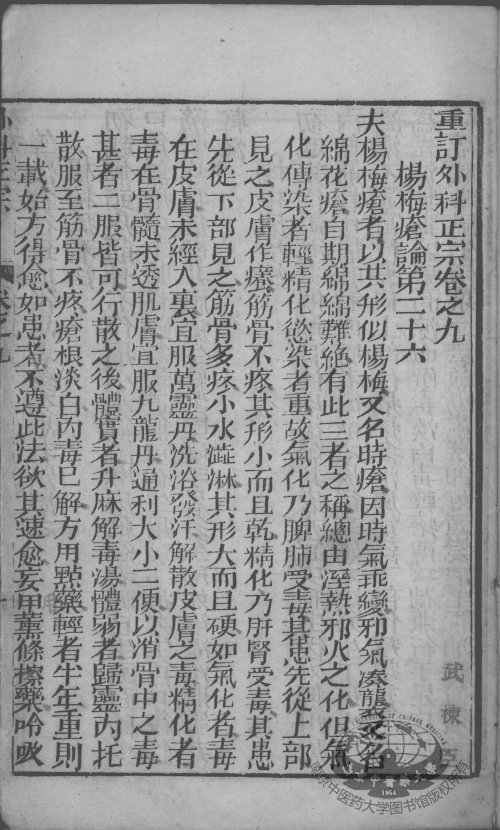 重訂外科正宗卷之九
楊梅瘡論第二十六
夫楊梅瘡者以其形似楊梅又名時瘡因時氣乖變邪氣湊襲又名
綿花瘡自期綿綿難絶有此三者之稱總由溼熱邪火之化但氣
化傳染者輕精化慾染者重故氣化乃脾肺受毒其患先從上部
見之皮膚作癢筋骨不疼其形小而且乾精化乃肝腎受毒其患
先從下部見之筋骨多疼小水澁淋其形大而且硬如氣化者毒
在皮膚未經入裏宜服萬靈丹洗浴發汗解散皮膚之毒精化者
毒在骨髓未透肌膚宜服九龍丹通利大小二便以消骨中之毒
甚者二服皆可行散之後體實者升麻解毒湯體弱者歸靈內托
散服至筋骨不疼瘡根淡白內毒已解方用點藥輕者半年重則
一載始方得愈如患者不遵此法欲其速愈妄用薰條擦藥哈吸
武棟
南京中医药大学图书馆版权所有
1954